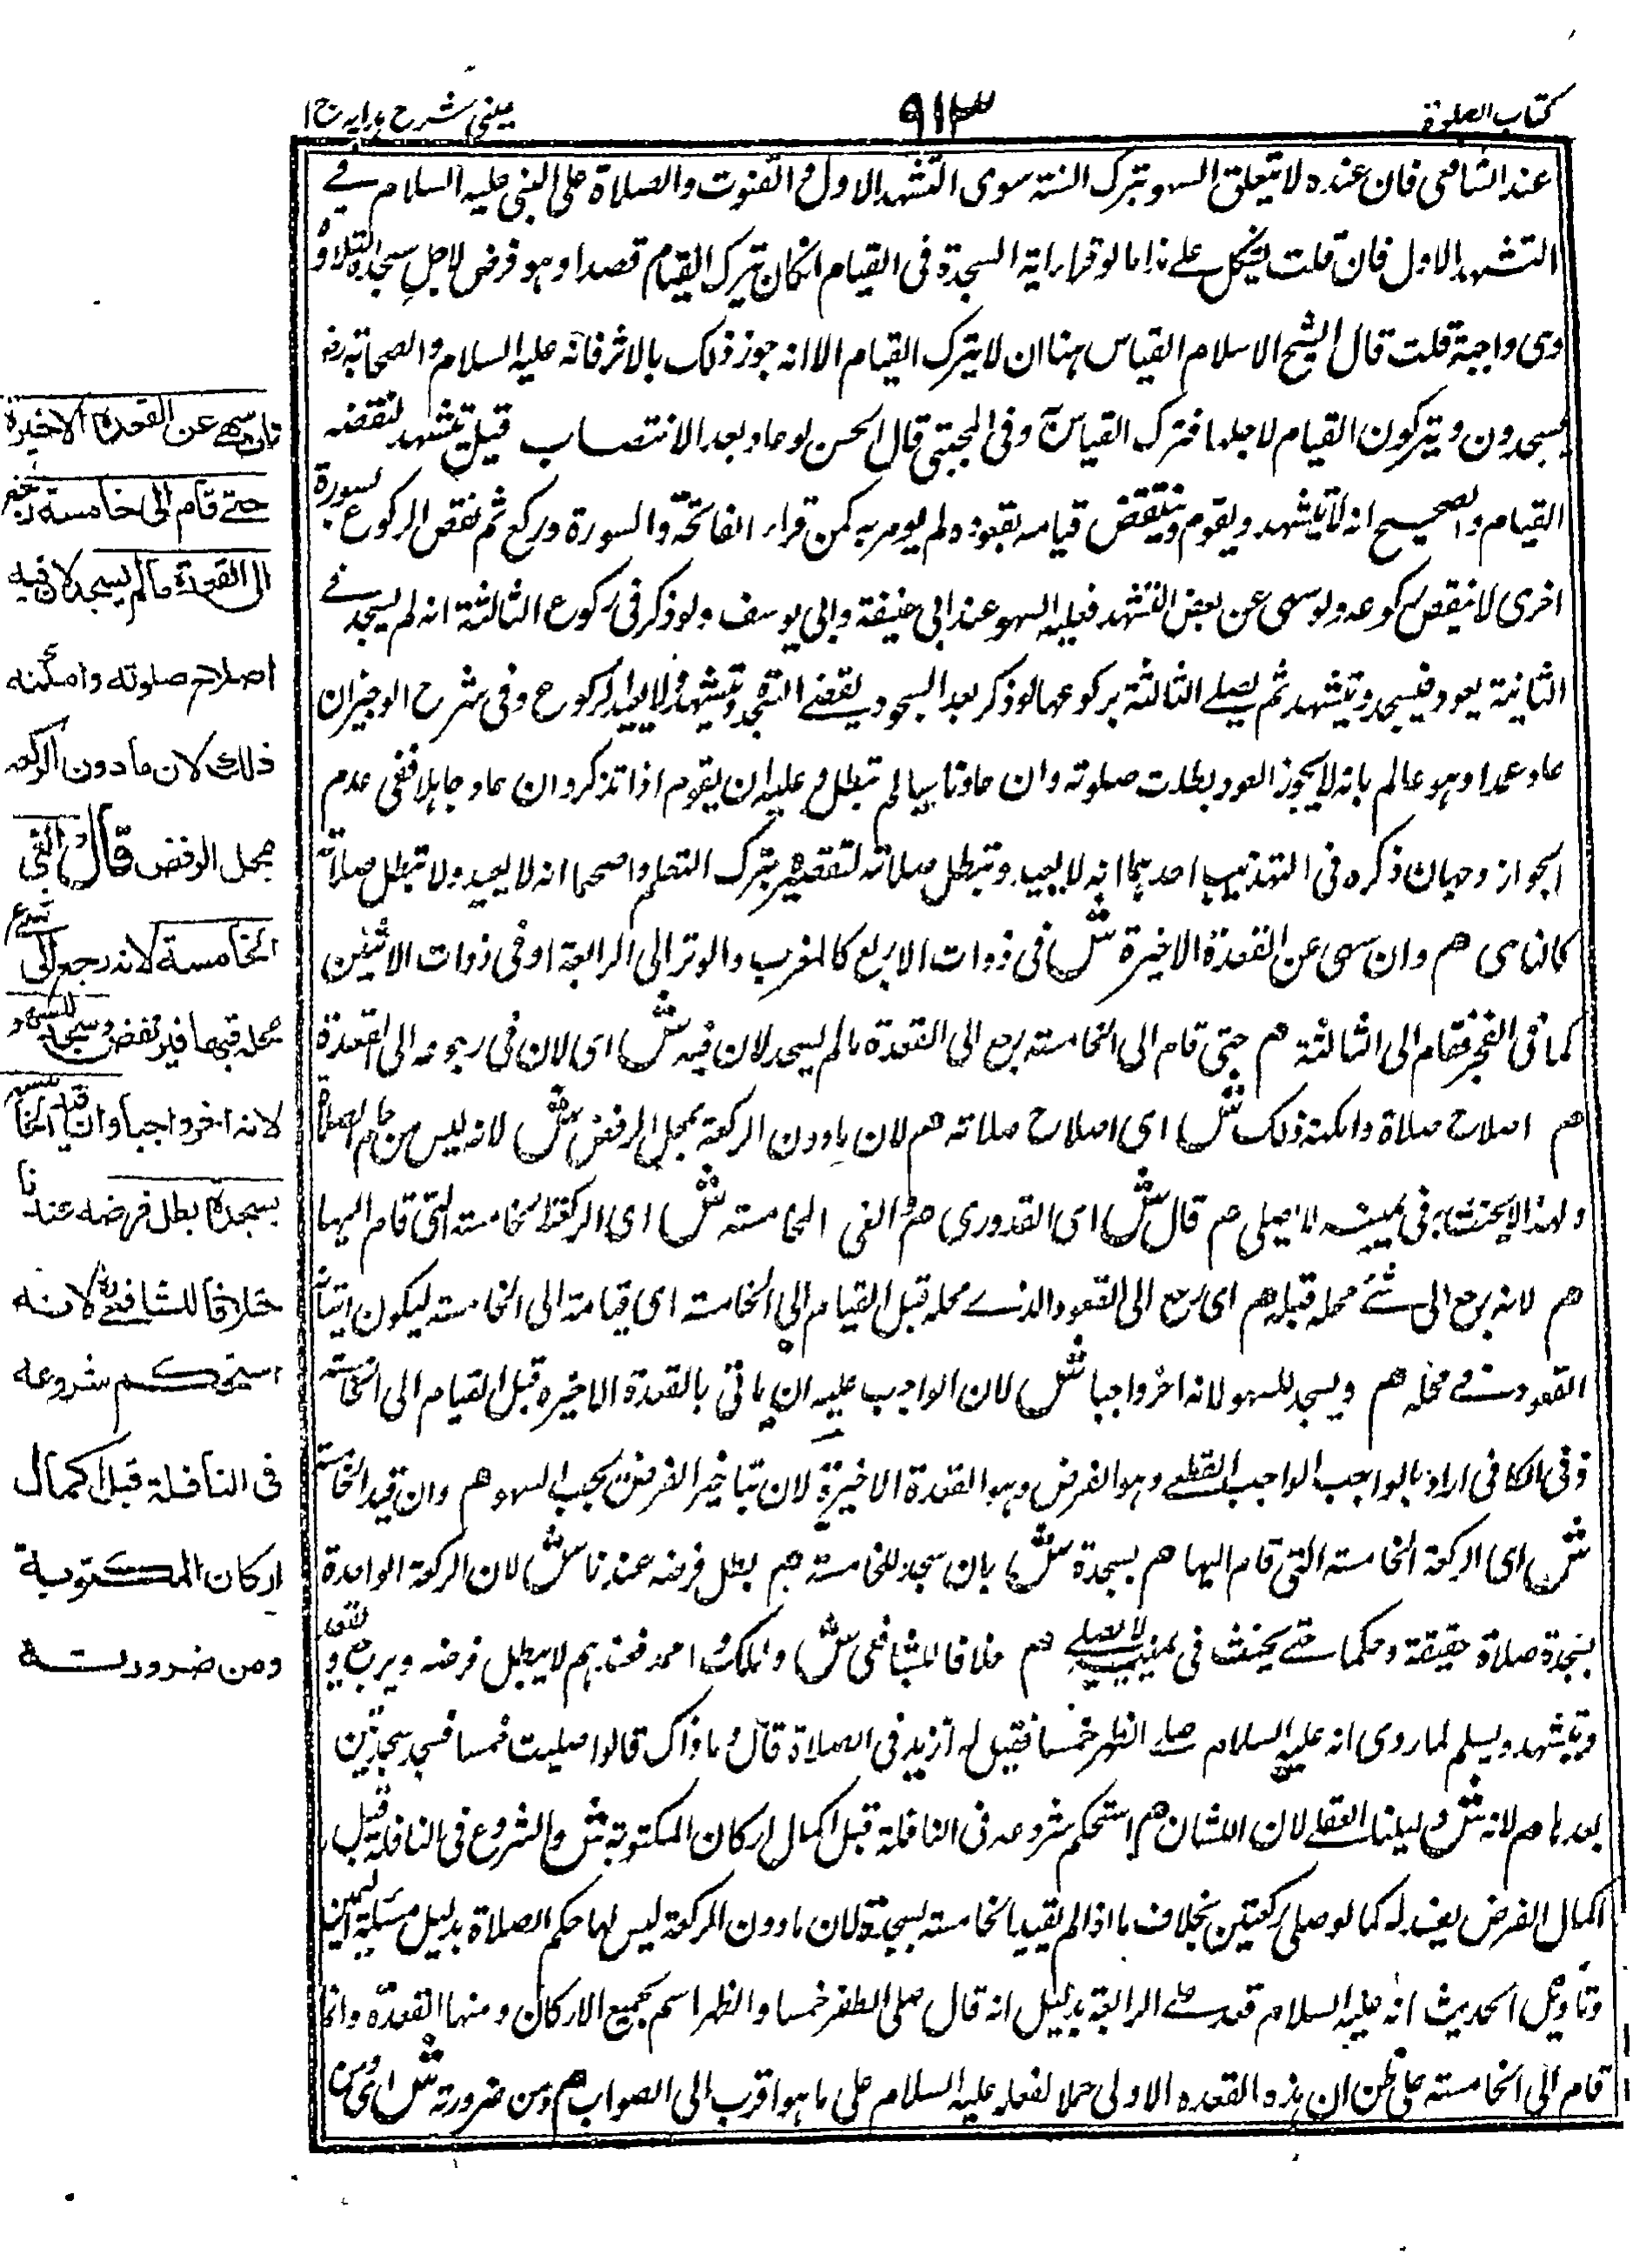 كتاب الصلوة
٩١٣
عيني شرح هدايه ج ا
عند الشافعي فان عنده لا يتعلق السهو بترك السنة سوى التشهد الاول والقنوت والصلاة على النبي عليه السلام في
التشهد الاول فان قلت يشكل على هذا ما لو قرا اية السجدة في القيام انكان يترك القيام قصدا وهو فرض لاجل سجدة التلاوة
وهي واجبة قلت قال الشيخ الاسلام القياس هنا ان لا يترك القيام الا انه جوز ذلك بالاثر فانه عليه السلام والصحابة رض
يسجدون ويتركون القيام لاجلها فترك القياس وفي المجتبى قال الحسن لو عاد بعد الانتصاب قيل يتشهد لنقضه
القيام والصحيح انه لا يتشهد ويقوم وينتقض قيامه بقعوده لم يومر به كمن قراء الفاتحة والسورة وركع ثم نقض الركوع بسورة
اخرى لا ينقض ركوعه ولو سهى عن بعض التشهد فعليه السهو عند ابي حنيفة وابي يوسف ولو ذكر في ركوع الثالثة انه لم يسجد في
الثانية يعود فيسجد ويتشهد ثم يصلي الثالثة بركوعها لو ذكر بعد السجود يقضي السجد ويتشهد ولا يعيد الركوع وفي شرح الوجيز ان
عاد عمدا وهو عالم بانه لا يجوز العود بطلت صلوته وان عاد ناسيا لم تبطل وعليه ان يقوم اذا تذكر وان عاد جاهلا ففي عدم
الجواز وجهان ذكره في التهذيب احدهما انه لا يعيد وتبطل صلاته لتقصيره بترك التعلم واصحهما انه لا يعيد ولا تبطل صلاته
كالناسي هم وان سهى عن القعدة الاخيرة ش في ذوات الاربع كالمغرب والوتر الى الرابعة او في ذوات الاثنين
كما في الفجر فقام الى الثالثة هم حتى قام الى الخامسة يرجع الى القعدة ما لم يسجد لان فيه ش اى لان في رجوعه الى القعدة
هم اصلاح صلاة وامكنه ذلك ش اى اصلاح صلاته هم لان ما دون الركعة بمحل الرفض ش لانه ليس من حكم الصلاة
ولهذا لا يحنث به في يمينه لا يصلي هم قال ش اى القدوري هم والغى الخامسة ش اى الركعة الخامسة التي قام اليها
هم لانه يرجع الى شئ محله قبلها هم اى يرجع الى القعود الذي محله قبل القيام الى الخامسة اى قيامه الى الخامسة ليكون اتيانه
القعود في محله هم ويسجد للسهو لانه اخر واجبا ش لان الواجب عليه ان ياتي بالقعدة الاخيرة قبل القيام الى الخامسة
وفي الكافي اراد بالواجب الواجب القطعي وهو الفرض وهو القعدة الاخيرة لان بتاخير الفرض يجب السهو هم وان قيد الخامسة
ش اى الركعة الخامسة التي قام اليها هم بسجدة ش بان سجد للخامسة هم بطل فرضه عندنا ش لان الركعة الواحدة
بسجدة صلاة حقيقة وحكما حتى يحنث في يمينه لا يصلي هم خلافا للشافعي ش ومالك واحمد فعندهم لا يبطل فرضه ويرجع ويقعد
ويتشهد ويسلم لما روى انه عليه السلام صلى الظهر خمسا فقيل له أزيد في الصلاة قال وما ذاك قالوا صليت خمسا فسجد سجدتين
بعد ما هم لانه ش ودليلنا العقلي لان الشان هم استحكم شروعه في النافلة قبل اكمال اركان المكتوبة ش والشروع في النافلة قبل
اكمال الفرض يفسده كما لو صلى ركعتين بخلاف ما اذا لم يقيد الخامسة بسجدة لان ما دون الركعة ليس لها حكم الصلاة بدليل مسئلة اليمين
وتاويل الحديث انه عليه السلام قعد على الرابعة بدليل انه قال صلى الظهر خمسا والظهر اسم بجميع الاركان ومنها القعدة وانما
قام الى الخامسة على ظن ان هذه القعدة الاولى حملا لفعله عليه السلام على ما هو اقرب الى الصواب هم ومن ضرورته ش اى ومن
فان سهى عن القعدة الاخيرة
حتى قام الى خامسة رجع
الى القعدة مالم يسجد لان فيه
اصلاح صلوته وامكنه
ذلك لان ما دون الركعه
بمحل الرفض قال والغى
الخامسة لانه رجع الى شئ
محله قبلها فيرتفض وسجد للسهو
لانه اخر واجبا وان قيد الخامسة
بسجدة بطل فرضه عندنا
خلافا للشافعي لانه
استحكم شروعه
في النافلة قبل اكمال
اركان المكتوبة
ومن ضرورته